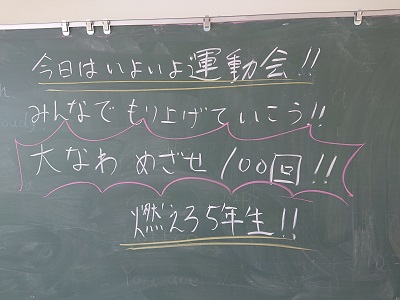 今日はいよいよ運動会!!
みんなでもり上げていこう!!
大なわ めざせ 100回!!
燃えろ5年生!!